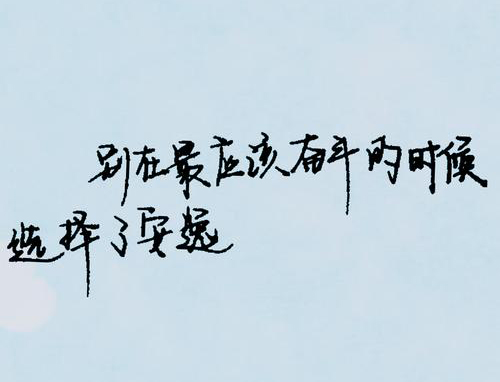 别在最应该奋斗的时候
选择了安逸